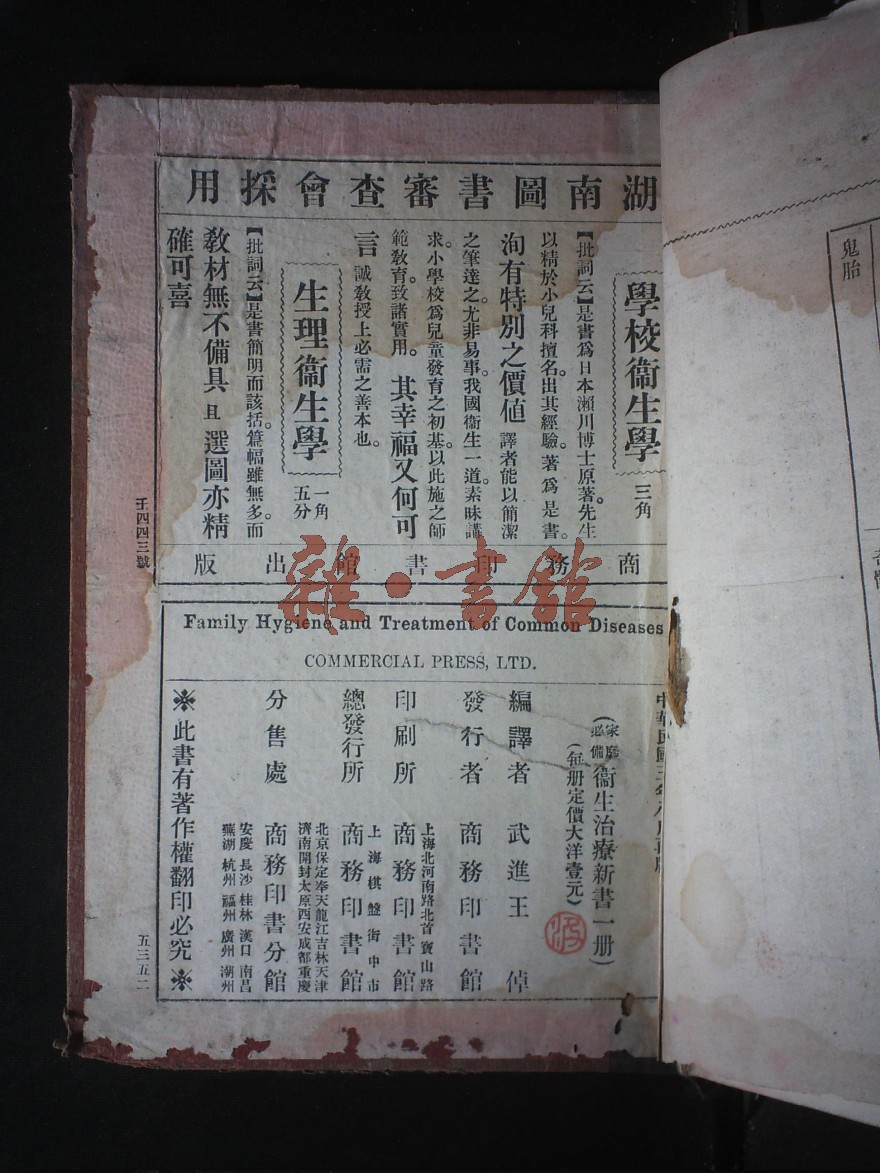 湖南圖書審查會採用
學校衞生學
三角
【批詞云】是書爲日本瀨川博士原著。先生
以精於小兒科擅名。出其經驗。著爲是書。
洵有特別之價値 譯者能以簡潔
之筆達之。尤非易事。我國衞生一道。素昧講
求。小學校爲兒童發育之初基。以此施之師
範敎育。致諸實用。其幸福又何可
言 誠敎授上必需之善本也。
生理衞生學
一角
五分
【批詞云】是書簡明而該括。篇幅雖無多。而
敎材無不備具 且 選圖亦精
確可喜
商務印書館出版
壬四四三號
Family Hygiene and Treatment of Common Diseases
COMMERCIAL PRESS, LTD.
中華民國三年
(家庭必備衞生治療新書一册)
(每册定價大洋壹元)
編譯者 武進王倬
發行者 商務印書館
上海北河南路北首寶山路
印刷所 商務印書館
上海棋盤街中市
總發行所 商務印書館
北京保定奉天龍江吉林天津
濟南開封太原西安成都重慶
分售處 商務印書分館
安慶 長沙 桂林 漢口 南昌
蕪湖 杭州 福州 廣州 潮州
※此書有著作權翻印必究※
五三五二
鬼胎
雜·書館